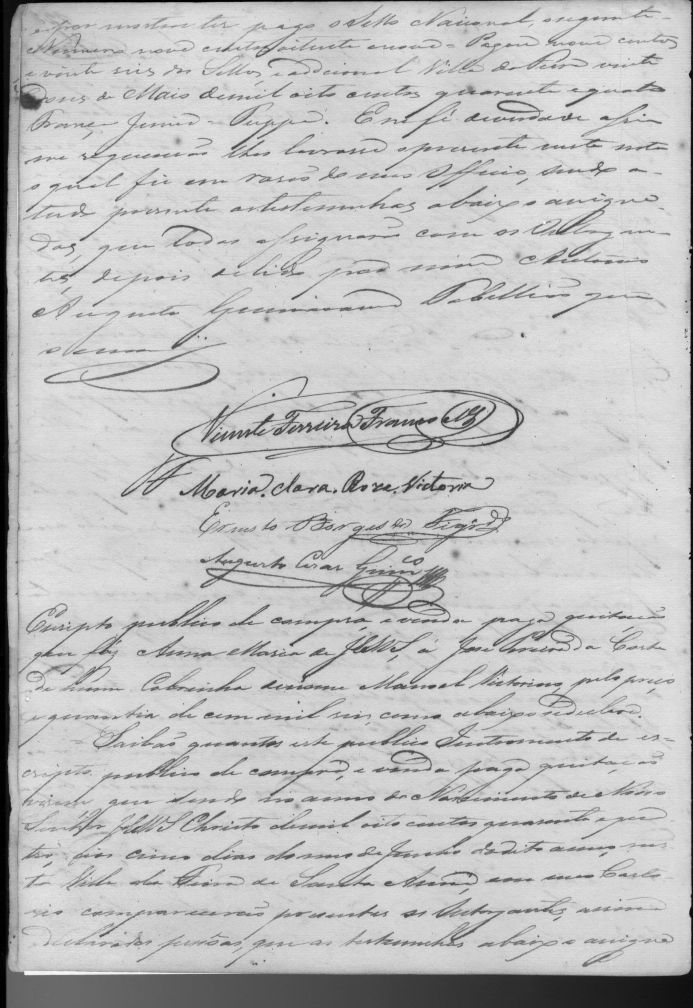 e por mostrar ter pago o Sello Nacional, seguinte-
Numero nove centos oitenta e nove - Pagou nove centos
e vinte seis do Sello, e addicional Villa da Feira vinte
dous de Maio de mil oito centos quarenta e quatro
França Junior - Puppe. E na fé de verdade assim
me requererão lhes lavrasse o presente nesta nota
o qual fiz em rasão do meu Officio, sendo a
tudo presente as testemunhas abaixo assigna-
das, que todos assignarão com os Outorgan-
tes, depois de lido por mim Antonio
Augusto Guimarães Tabellião que
o escrevi
Vicente Ferreira Franco
Maria. Clara. Roza. Victoria
Ernesto Borges de Figrdo
Augusto Cesar Guimes
Escripto publico de compra, e venda paga quitação
que faz Anna Maria de JEsus, á José da Costa
de hum Cabrinha de nome Manoel Victorino, pelo preço
e quantia de cem mil reis, como abaixo se declara.
Saibão quantos este publico Instromento de es-
cripto publico de compra, e venda paga quitação
virem, que sendo no anno do Nascimento de Nosso
Senhor JEsus Christo de mil oito centos quarenta e qua-
tro, aos cinco dias do mes de Junho do dito anno, nes-
ta Villa da Feira de Santa Anna, em meu Carto-
rio comparecerão presentes os Outorgantes, assim
declarados pessoas, que as testemunhas abaixo assigna